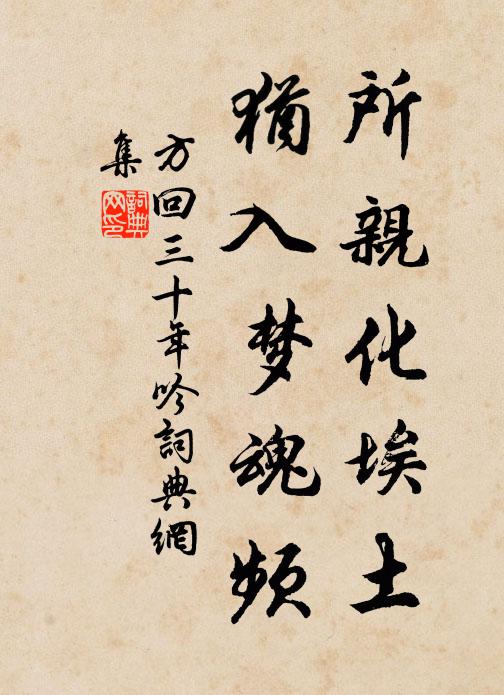 所親化埃土
猶入梦魂频
方回三十年吟詞典網
集
詞典
网印